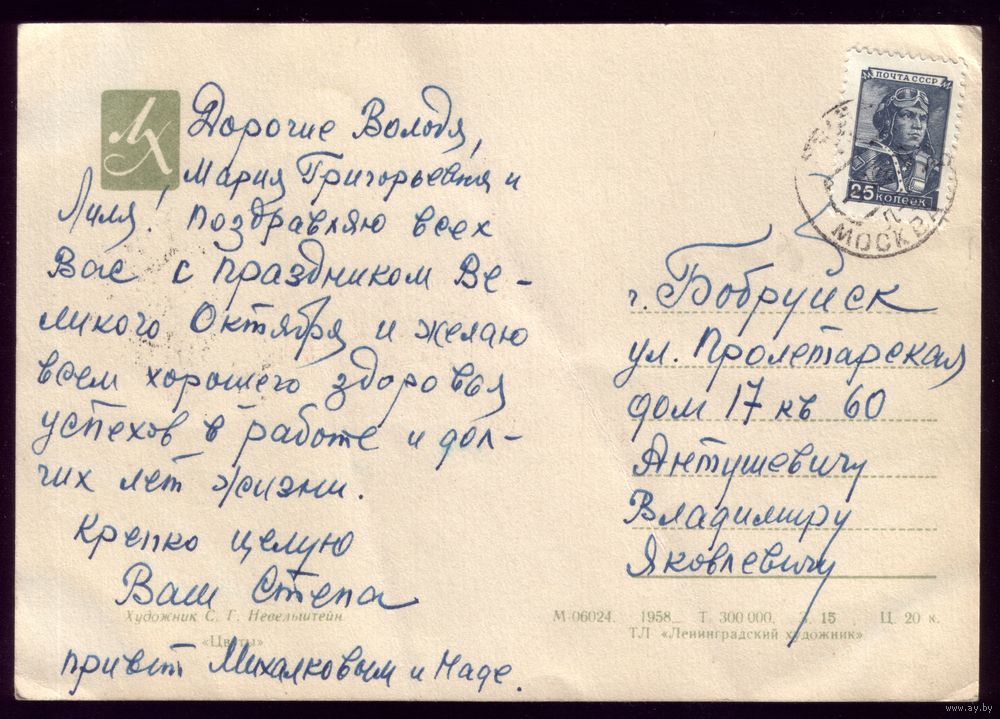 ЛХ
Дорогие Володя,
Мария Григорьевна и
Лиля! Поздравляю всех
Вас с праздником Ве-
ликого Октября и желаю
всем хорошего здоровья
успехов в работе и дол-
гих лет жизни.
Крепко целую
Ваш Степа
Художник С. Г. Невельштейн
«Цветы»
привет Михалковым и Наде.
ПОЧТА СССР
25 КОПЕЕК
МОСКВА
г. Бобруйск
ул. Пролетарская
дом 17 кв 60
Антушевичу
Владимиру
Яковлевичу
М-06024. 1958. Т. 300 000. З. 15 Ц. 20 к.
ТЛ «Ленинградский художник»
www.ay.by